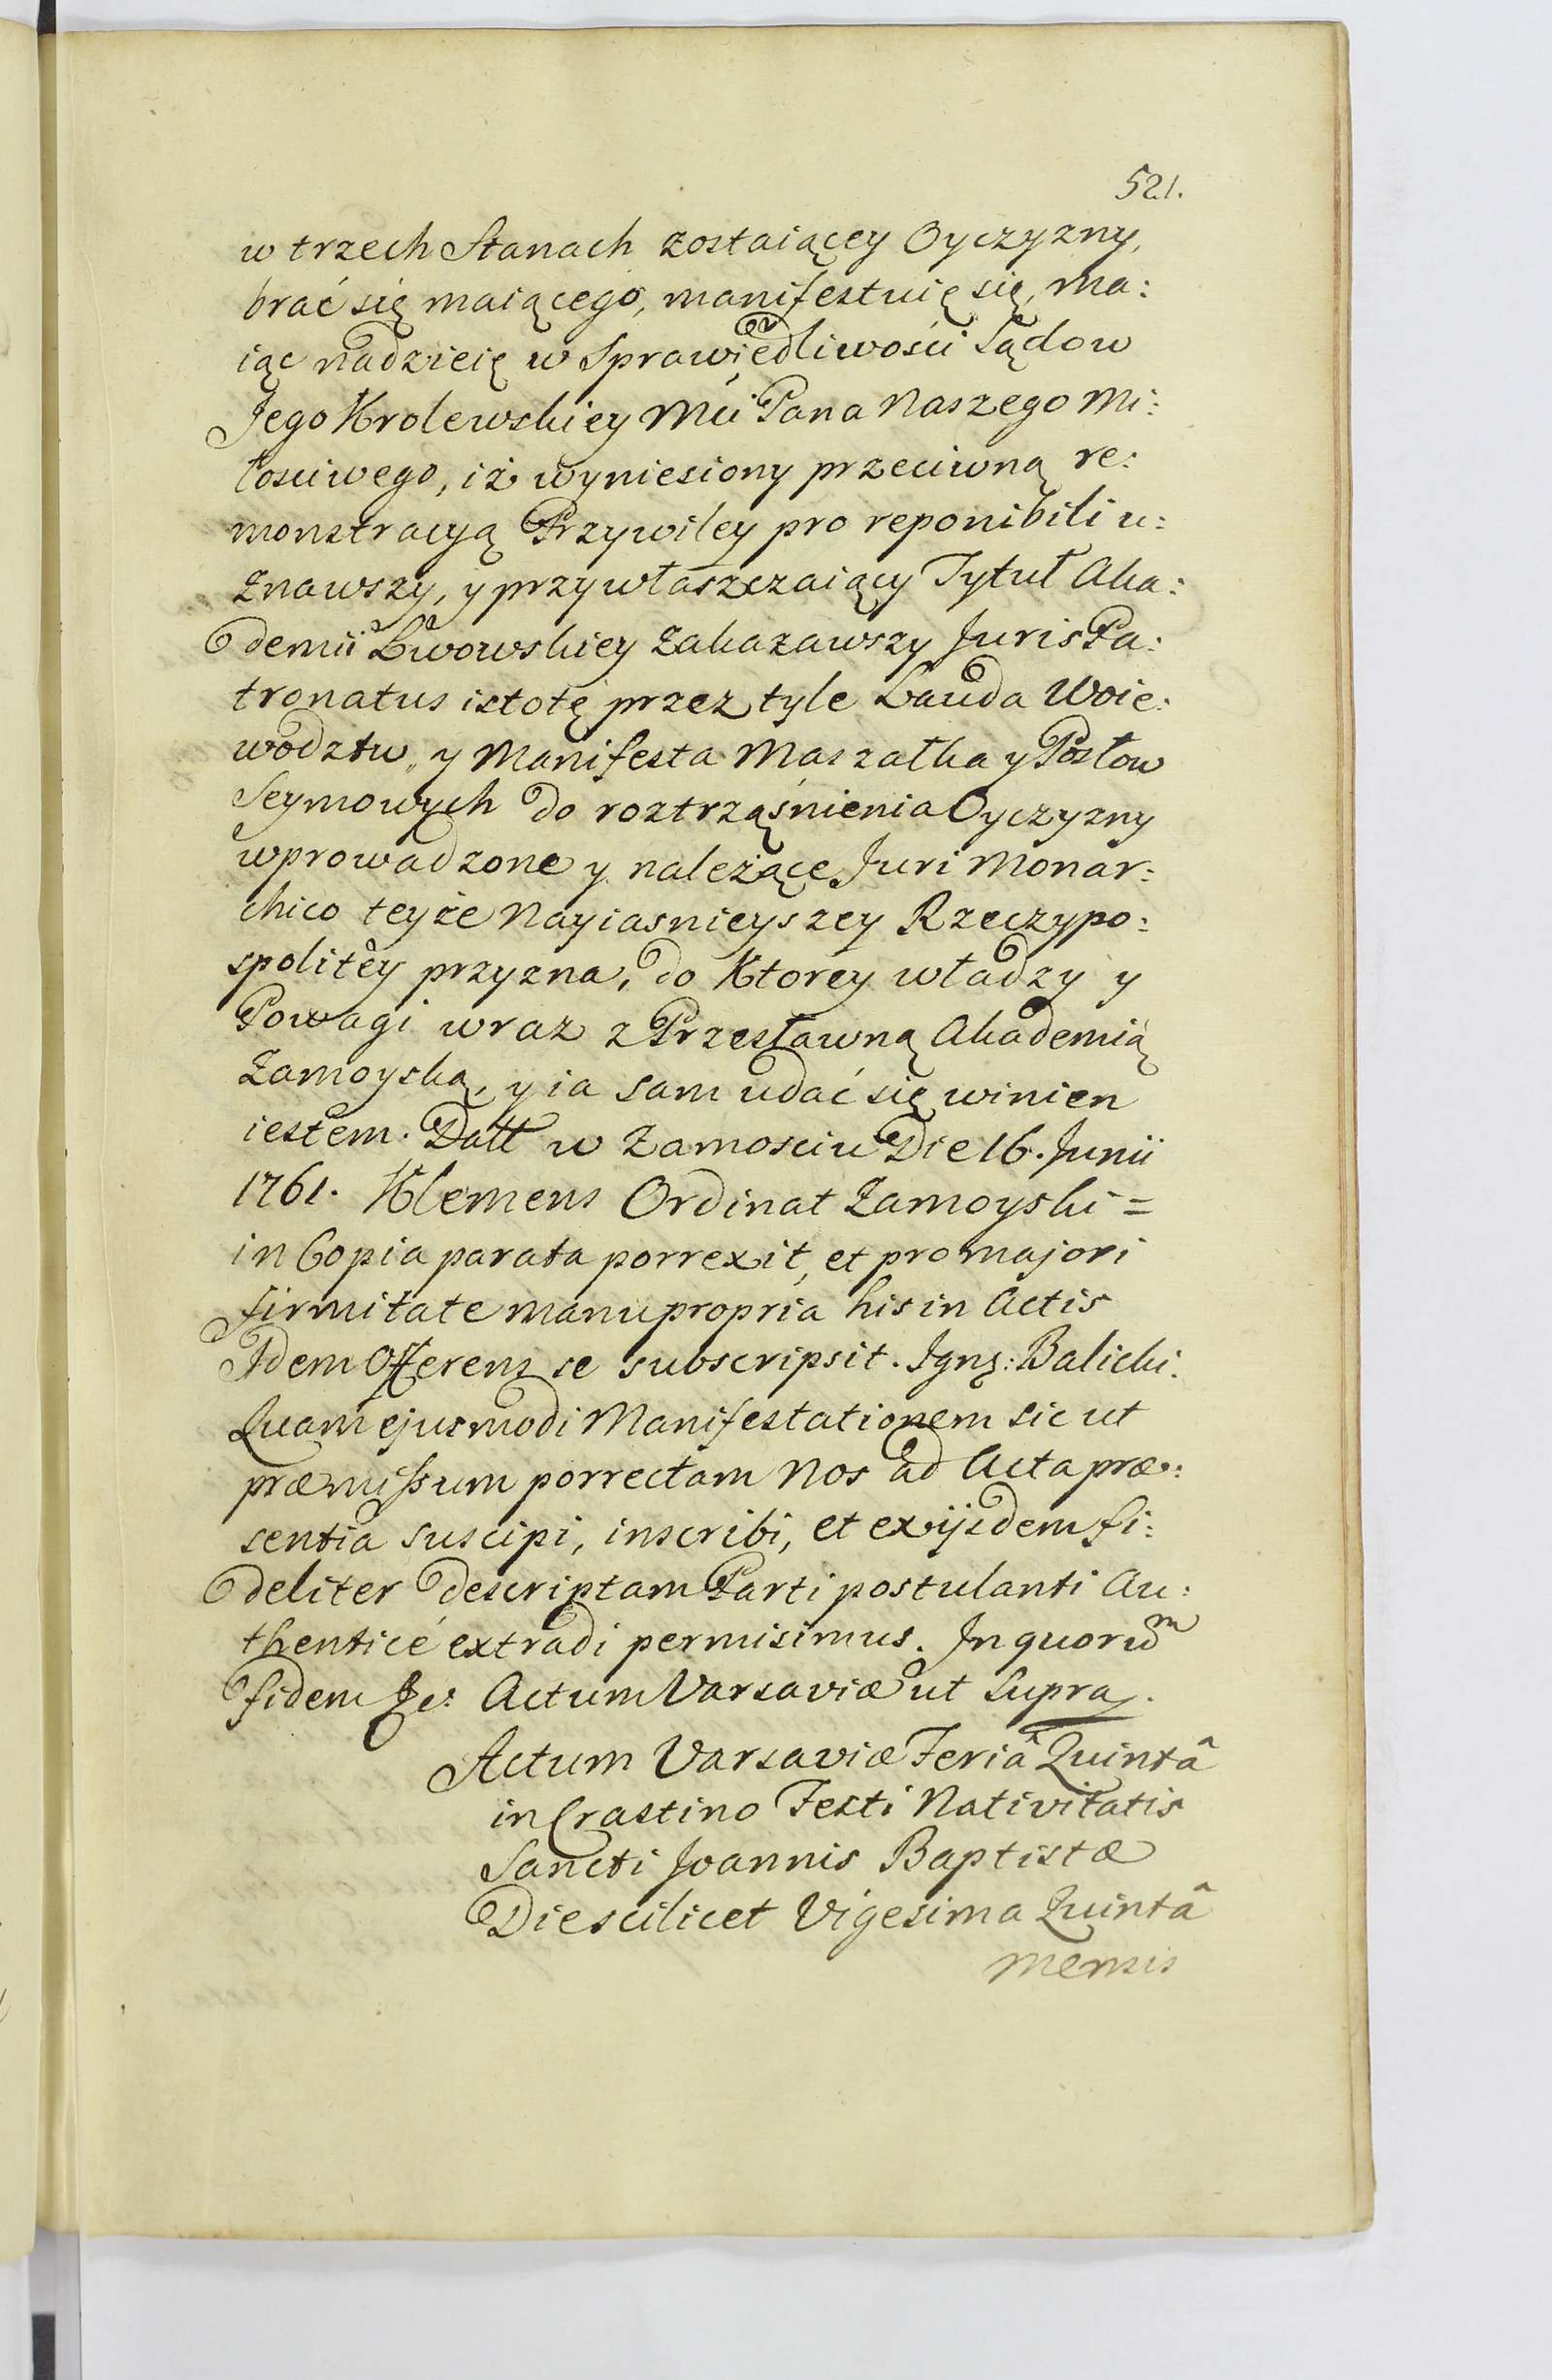 521.
w trzech Stanach zostaiącey Oyczyzny,
brać się maiącego, manifestuię się, ma:
iąc nadzieię w Sprawiedliwości Sądow
Jego Krolewskiey Mci Pana Naszego Mi:
łosciwego, iż wyniesiony przeciwną re:
monstracyą Przywiley pro reponibili u:
znawszy, y przywłaszczaiący Tytuł Aka:
demii Lwowskiey zakazawszy Juris Pa:
tronatus istotę przez tyle Lauda Woie:
wodztw, y Manifesta Maszałka y Posłow
Seymowych do roztrząśnienia Oyczyzny
wprowadzone y należące Juri Monar:
chico teyże Nayiasnieyszey Rzeczypo:
spolitey przyzna, do Ktorey władzy y
Powagi wraz z Przesławną Akademią
Zamoyską, y ia sam udać się winien
iestem. Datt w Zamosciu Die 16. Junii
1761. Klemens Ordinat Zamoyski =
in Copia parata porrexit, et pro majori
firmitate manu propria his in Actis
Idem Offerens se subscripsit. Ign: Balicki.
Quam ejusmodi Manifestationem sic ut
præmissum porrectam Nos ad Acta præ:
sentia suscipi, inscribi, et ex ijsdem fi:
deliter descriptam Parti postulanti Au:
thenticé extradi permisimus. In quorum
fidem &c: Actum Varsaviæ ut supra.
Actum Varsaviæ Feriâ Quintâ
in Crastino Festi Nativitatis
Sancti Joannis Baptistæ
Die scilicet Vigesima Quintâ
mensis